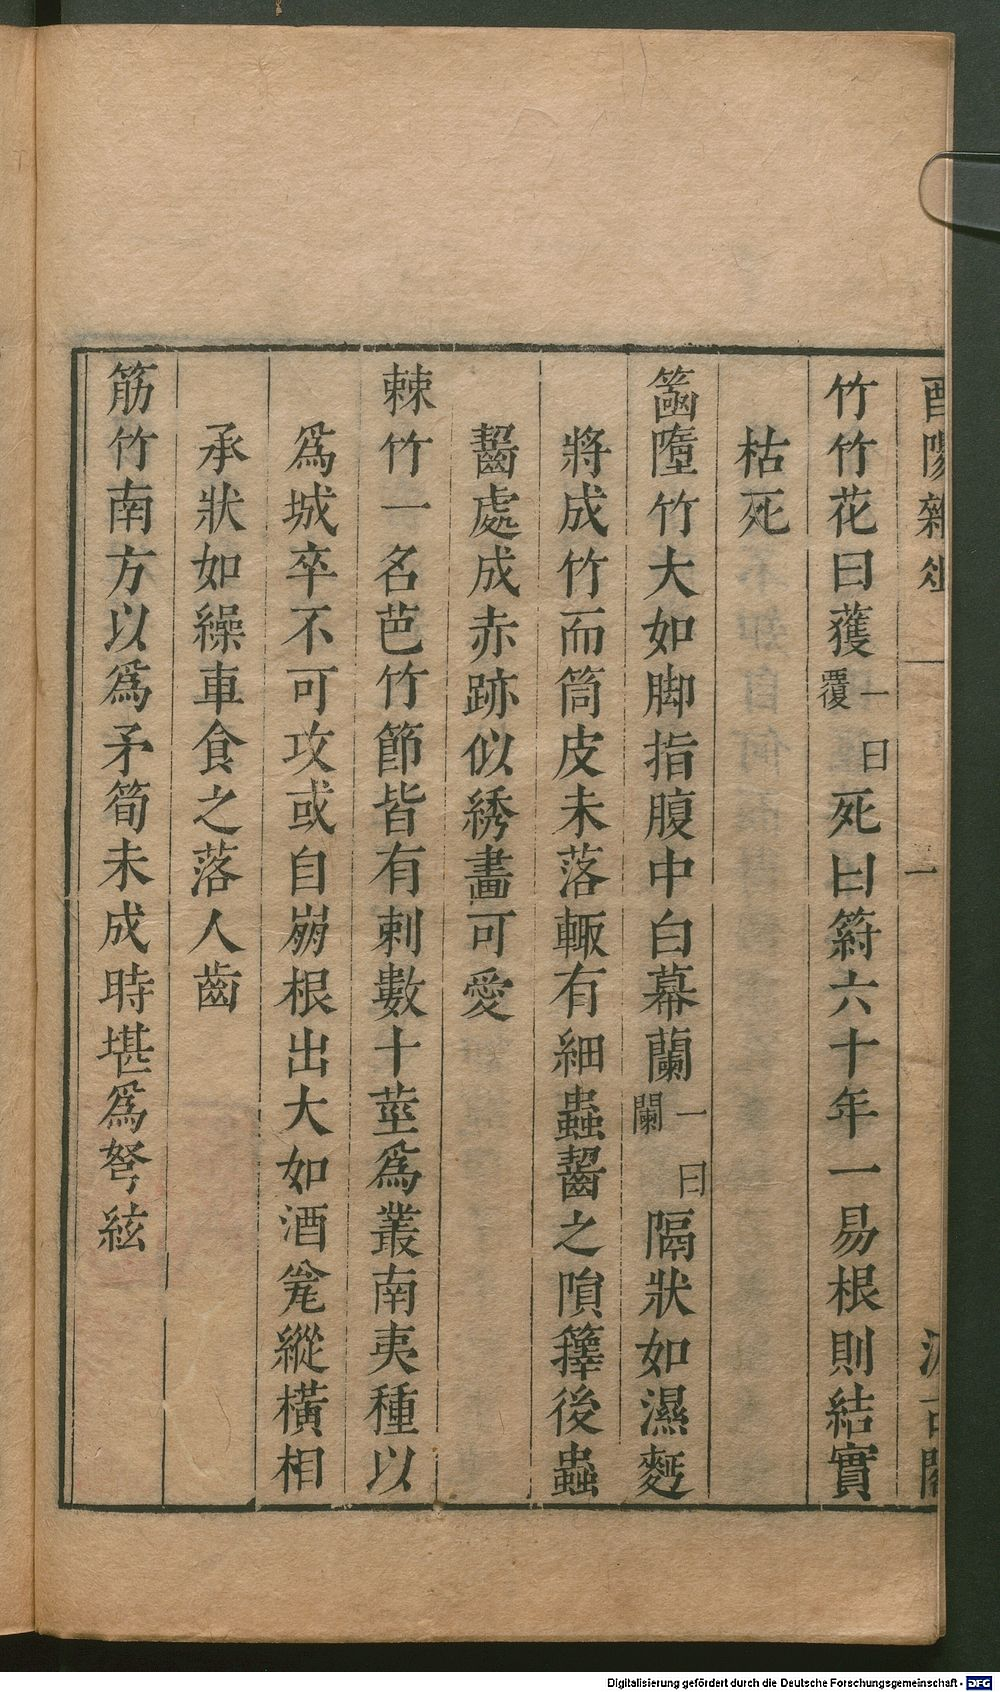 酉陽雜俎 一 一 汲古閣
竹竹花曰䕶一曰覆死曰䈙六十年一易根則結實
枯死
䈱𥳍竹大如脚指腹中白幕蘭一曰闌隔狀如濕麪
將成竹而筒皮未落輒有細蟲齧之隕籜後蟲
齧處成赤跡似綉畫可愛
棘竹一名芭竹節皆有刺數十莖爲叢南夷種以
爲城卒不可攻或自崩根出大如酒瓮縱橫相
承狀如繰車食之落人齒
筋竹南方以爲矛筍未成時堪爲弩絃
Digitalisierung gefördert durch die Deutsche Forschungsgemeinschaft - DFG